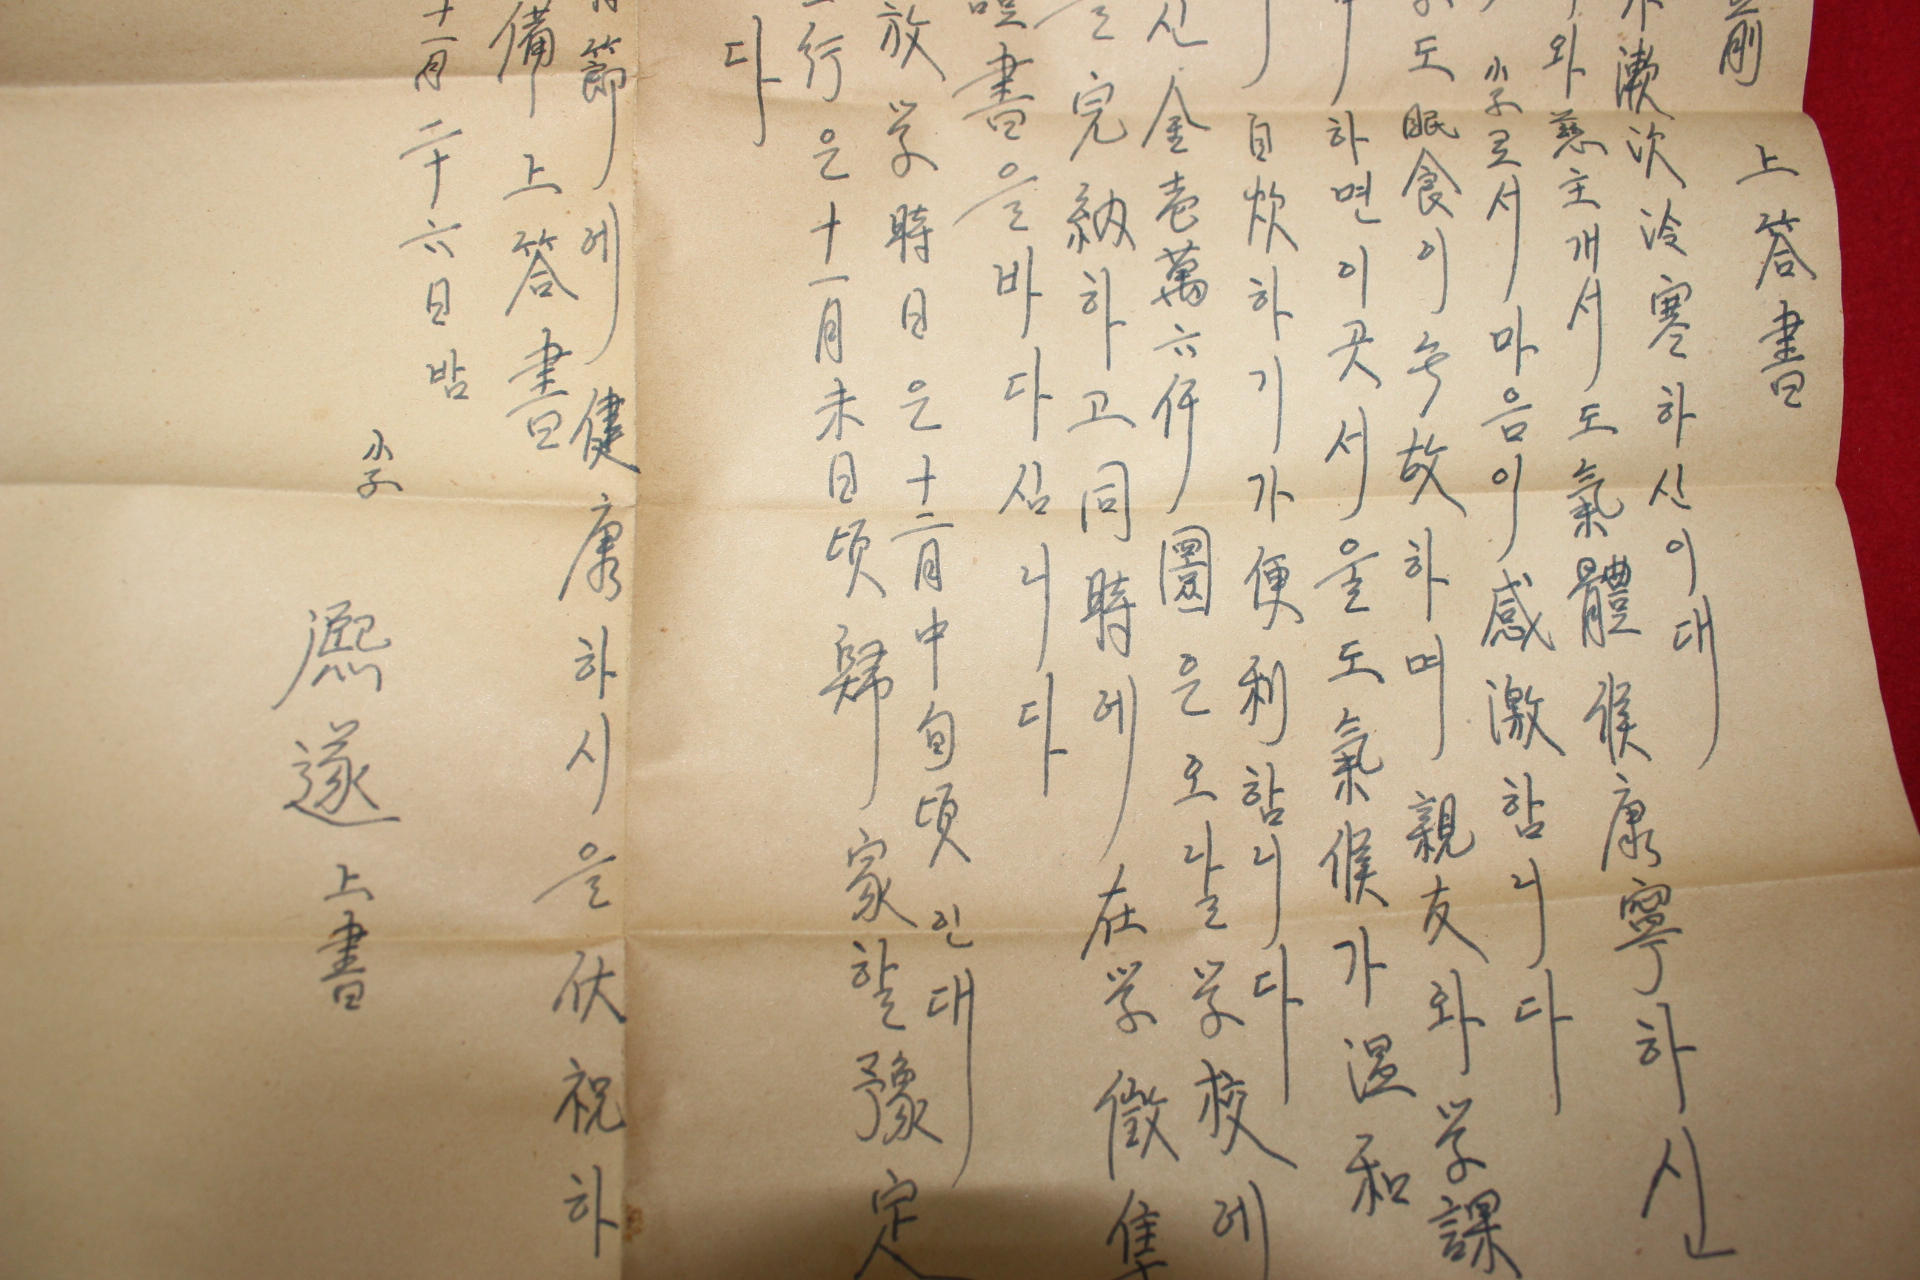 前 上答書
漸次 冷寒하신이대
와 慈主개서도 氣體候康寧하신
小子로서 마음이 感激함니다
도 眠食이 無故하며 親友와 学課
하면 이곳서울도 氣候가 温和
自炊하기가 便利함니다
신 金壱萬六仟圜은 오날 学校에
完納하고 同時에 在学徴集
書을 바다심니다
放学時日은 十二月中旬頃인대
行은 十一月末日頃 歸家할 豫定
다
節에 健康하시을 伏祝하
備上答書
十一月二十六日 밤
小子
熙遂 上書